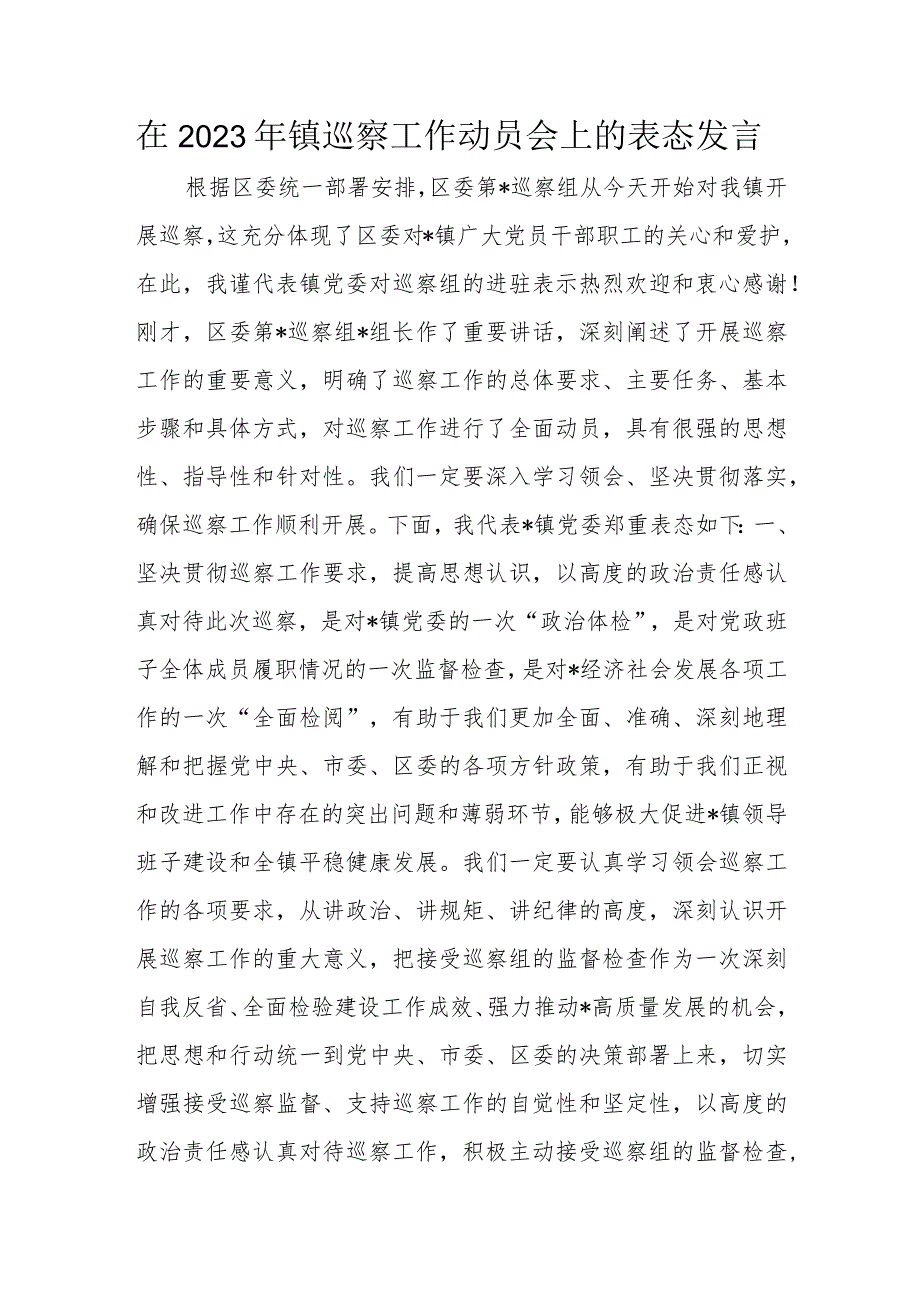 在2023年镇巡察工作动员会上的表态发言
根据区委统一部署安排，区委第*巡察组从今天开始对我镇开
展巡察，这充分体现了区委对*镇广大党员干部职工的关心和爱护，
在此，我谨代表镇党委对巡察组的进驻表示热烈欢迎和衷心感谢！
刚才，区委第*巡察组*组长作了重要讲话，深刻阐述了开展巡察
工作的重要意义，明确了巡察工作的总体要求、主要任务、基本
步骤和具体方式，对巡察工作进行了全面动员，具有很强的思想
性、指导性和针对性。我们一定要深入学习领会、坚决贯彻落实，
确保巡察工作顺利开展。下面，我代表*镇党委郑重表态如下：一、
坚决贯彻巡察工作要求，提高思想认识，以高度的政治责任感认
真对待此次巡察，是对*镇党委的一次“政治体检”，是对党政班
子全体成员履职情况的一次监督检查，是对*经济社会发展各项工
作的一次“全面检阅”，有助于我们更加全面、准确、深刻地理
解和把握党中央、市委、区委的各项方针政策，有助于我们正视
和改进工作中存在的突出问题和薄弱环节，能够极大促进*镇领导
班子建设和全镇平稳健康发展。我们一定要认真学习领会巡察工
作的各项要求，从讲政治、讲规矩、讲纪律的高度，深刻认识开
展巡察工作的重大意义，把接受巡察组的监督检查作为一次深刻
自我反省、全面检验建设工作成效、强力推动*高质量发展的机会，
把思想和行动统一到党中央、市委、区委的决策部署上来，切实
增强接受巡察监督、支持巡察工作的自觉性和坚定性，以高度的
政治责任感认真对待巡察工作，积极主动接受巡察组的监督检查，